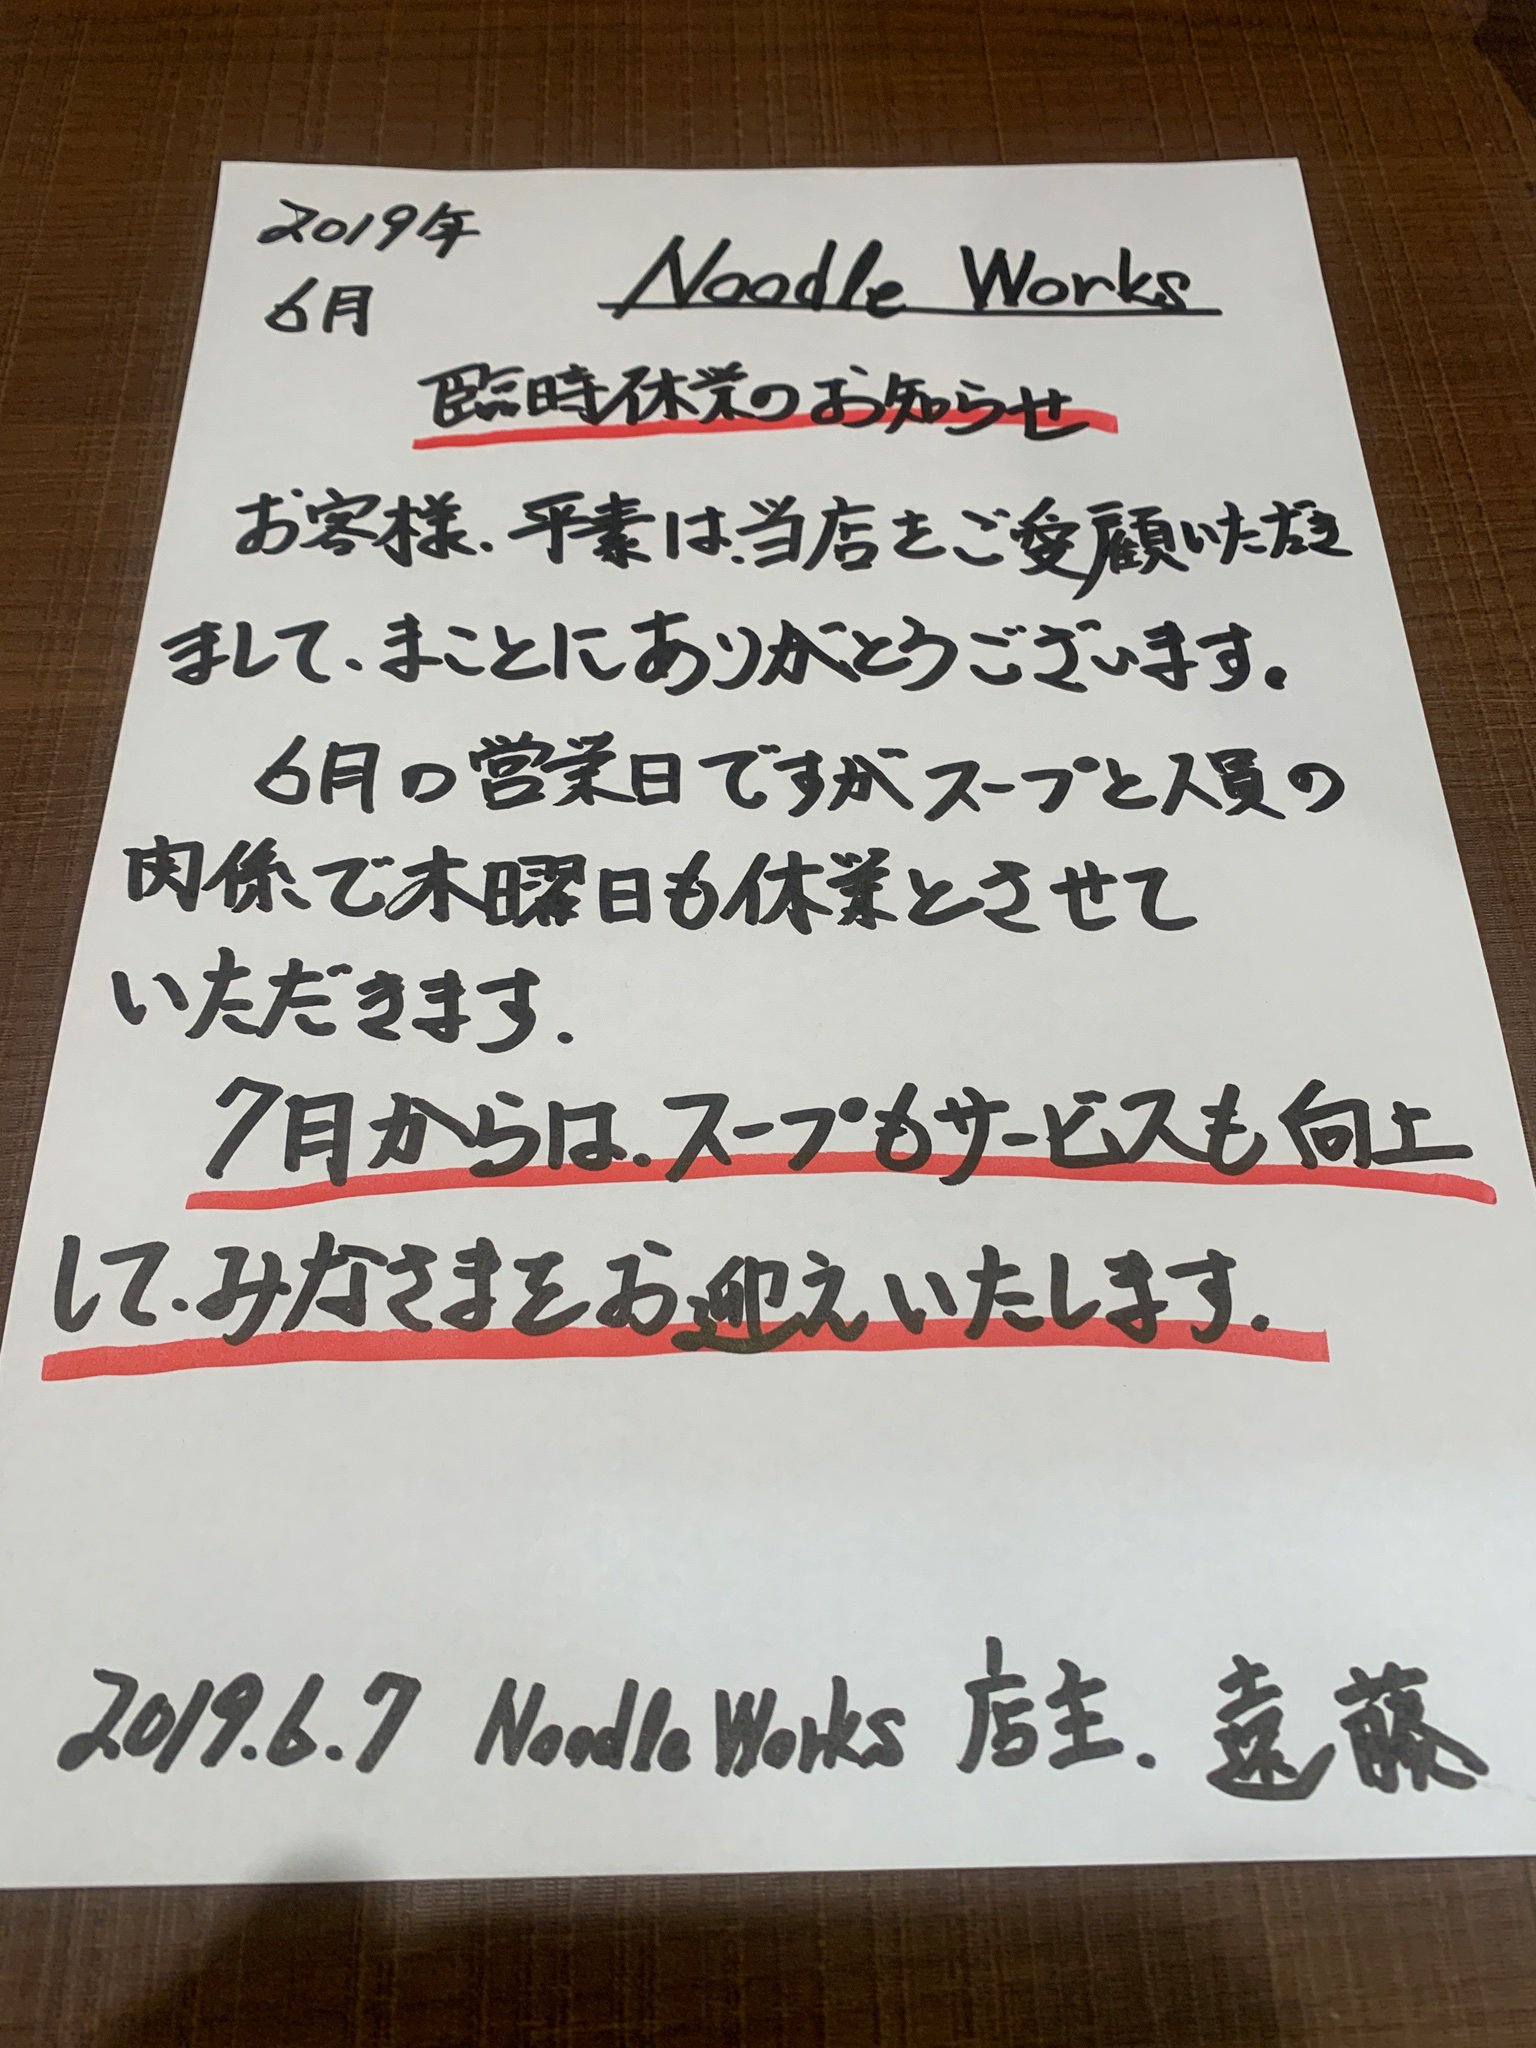 2019年
6月
Noodle Works
臨時休業のお知らせ
お客様、平素は、当店をご愛顧いただき
まして、まことにありがとうございます。
6月の営業日ですがスープと人員の
関係で木曜日も休業とさせて
いただきます.
7月からは、スープもサービスも向上
して、みなさまをお迎えいたします.
2019.6.7 Noodle Works 店主. 遠藤